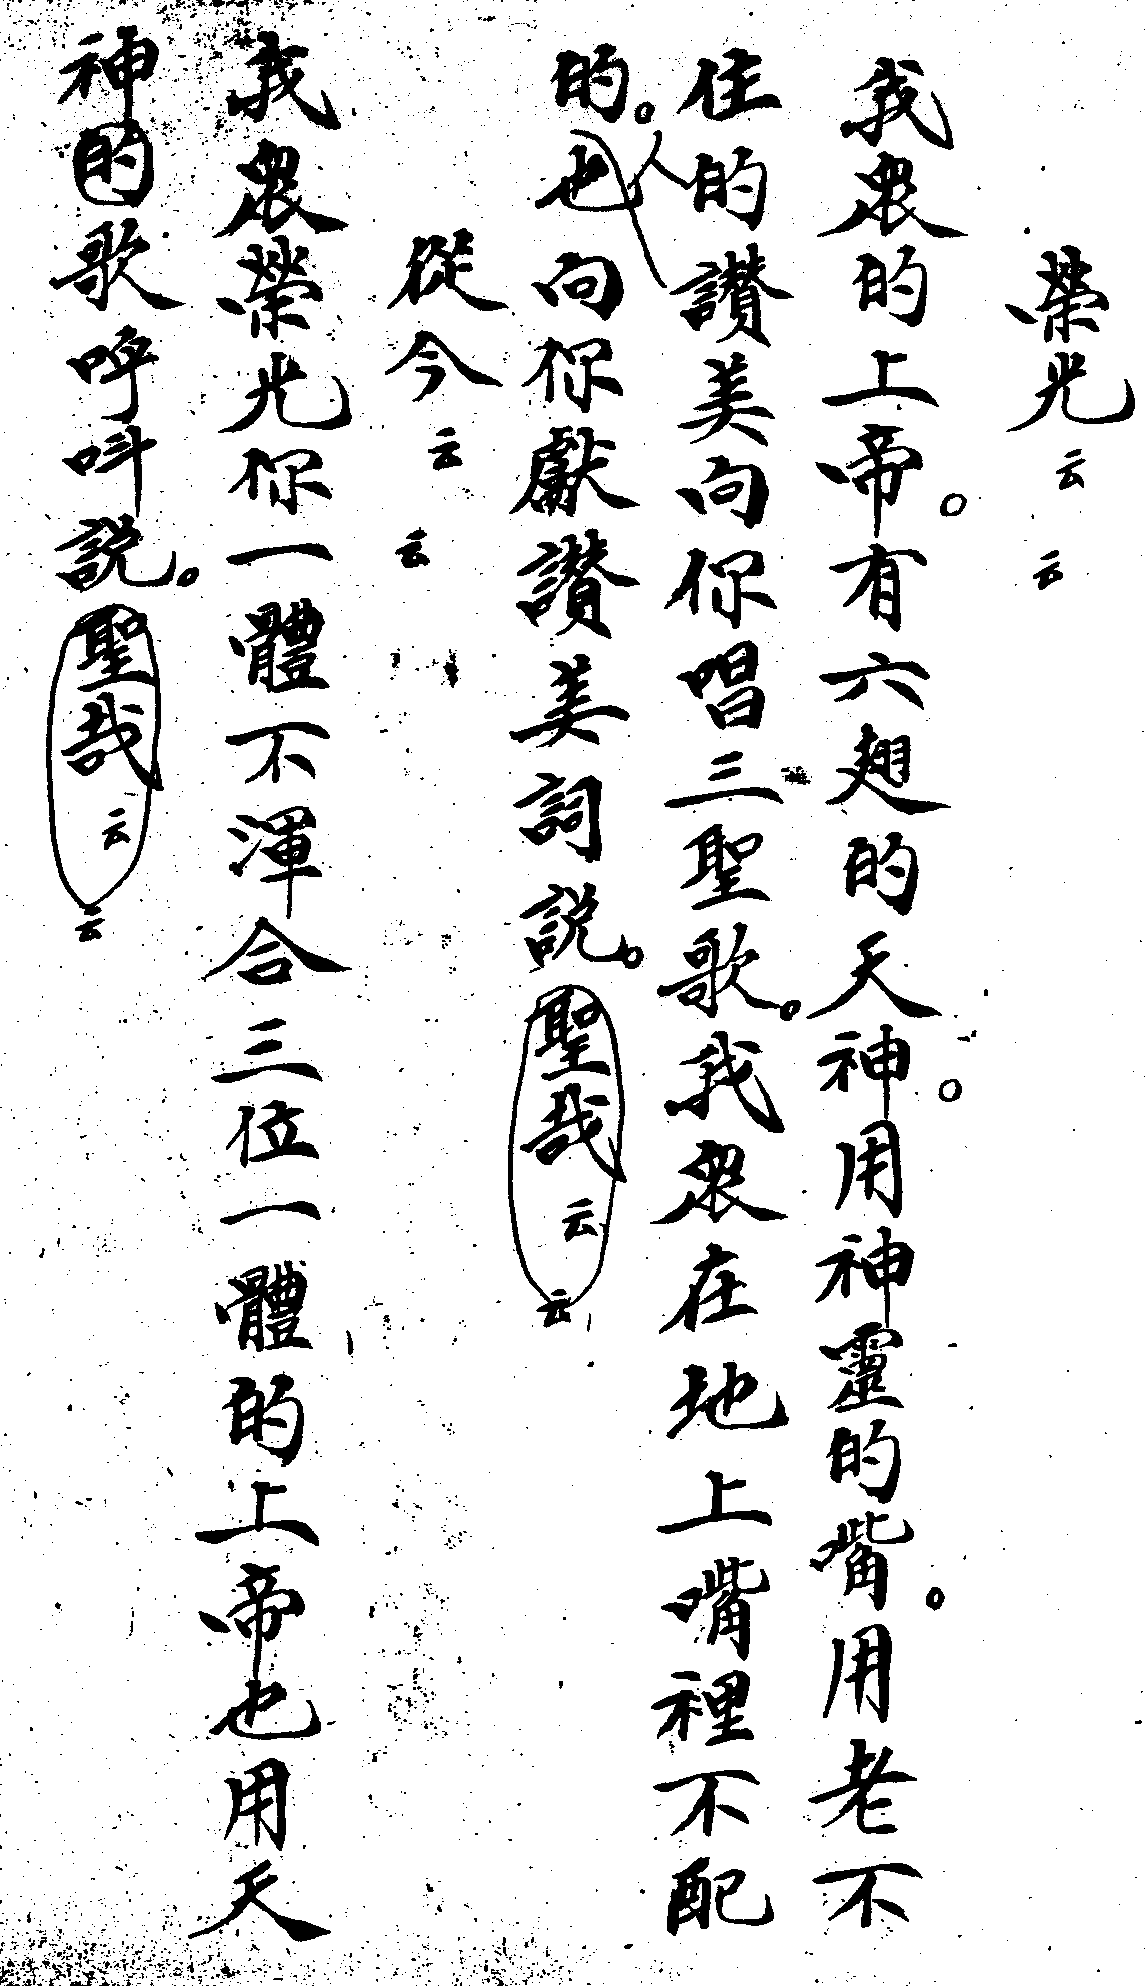 榮光云云
我衆的上帝。有六翅的天神。用神靈的嘴。用老不
住的讚美向你唱三聖歌。我衆在地上嘴裡不配
的。人也向你獻讚美詞説。聖哉云云
從今云云
我衆榮光你一體不渾合三位一體的上帝也用天
神的歌呼呌説。聖哉云云